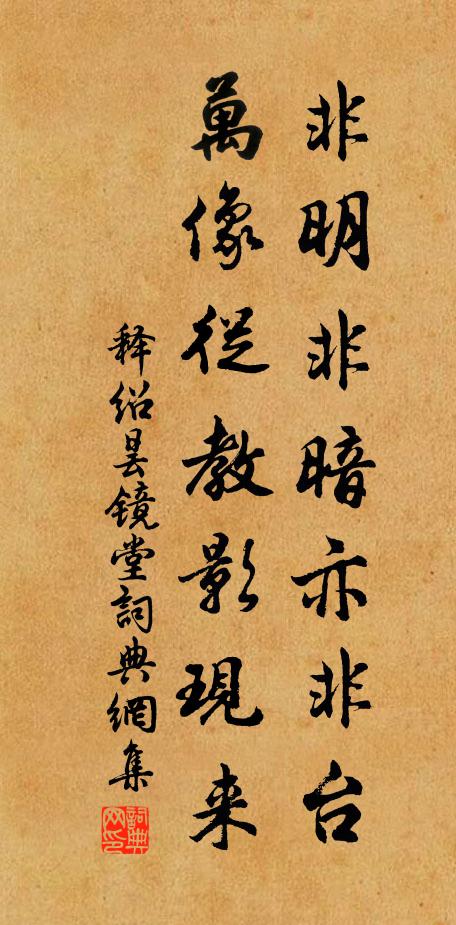 非明非暗亦非台
萬像從教影現来
释绍昙镜堂詞典網集
詞典网印